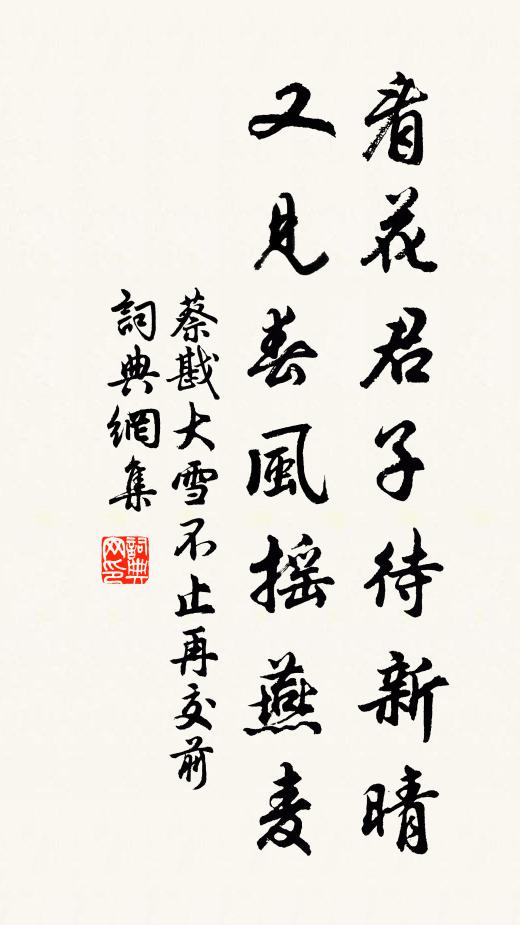 看花君子待新晴
又見春風搖燕麦
蔡戡大雪不止再交前
詞典網集
詞典网印